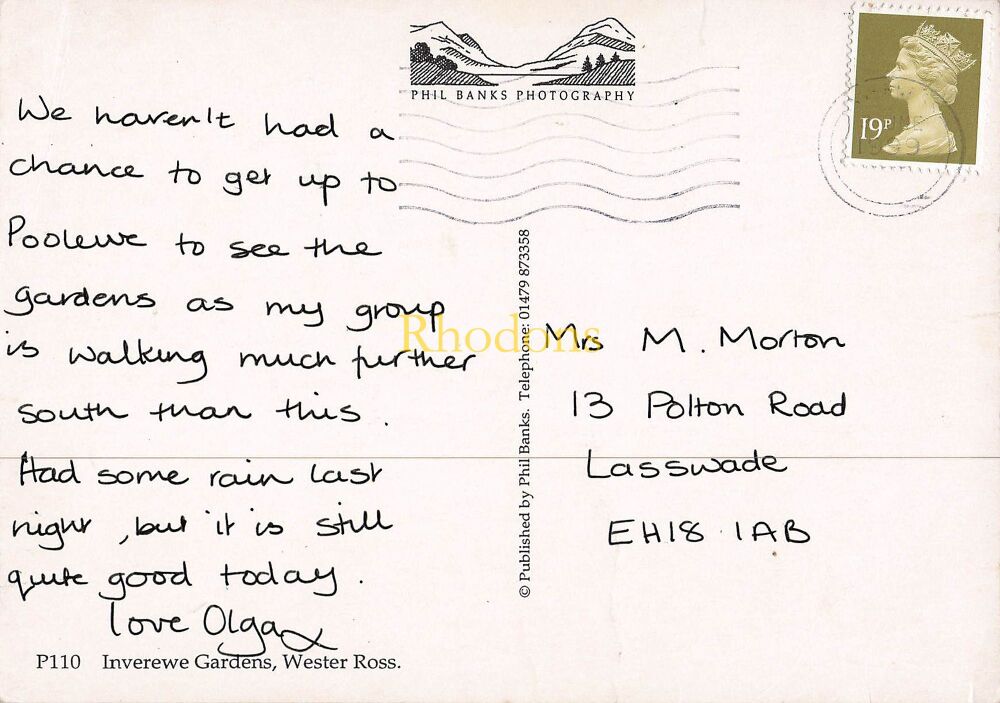 PHIL BANKS PHOTOGRAPHY
19P
We haven't had a
chance to get up to
Poolewe to see the
gardens as my group
is walking much further
south than this.
Had some rain last
night, but it is still
quite good today.
love Olga x
P110 Inverewe Gardens, Wester Ross.
© Published by Phil Banks. Telephone: 01479 873358
Rhodons
Mrs M. Morton
13 Polton Road
Lasswade
EH18 1AB